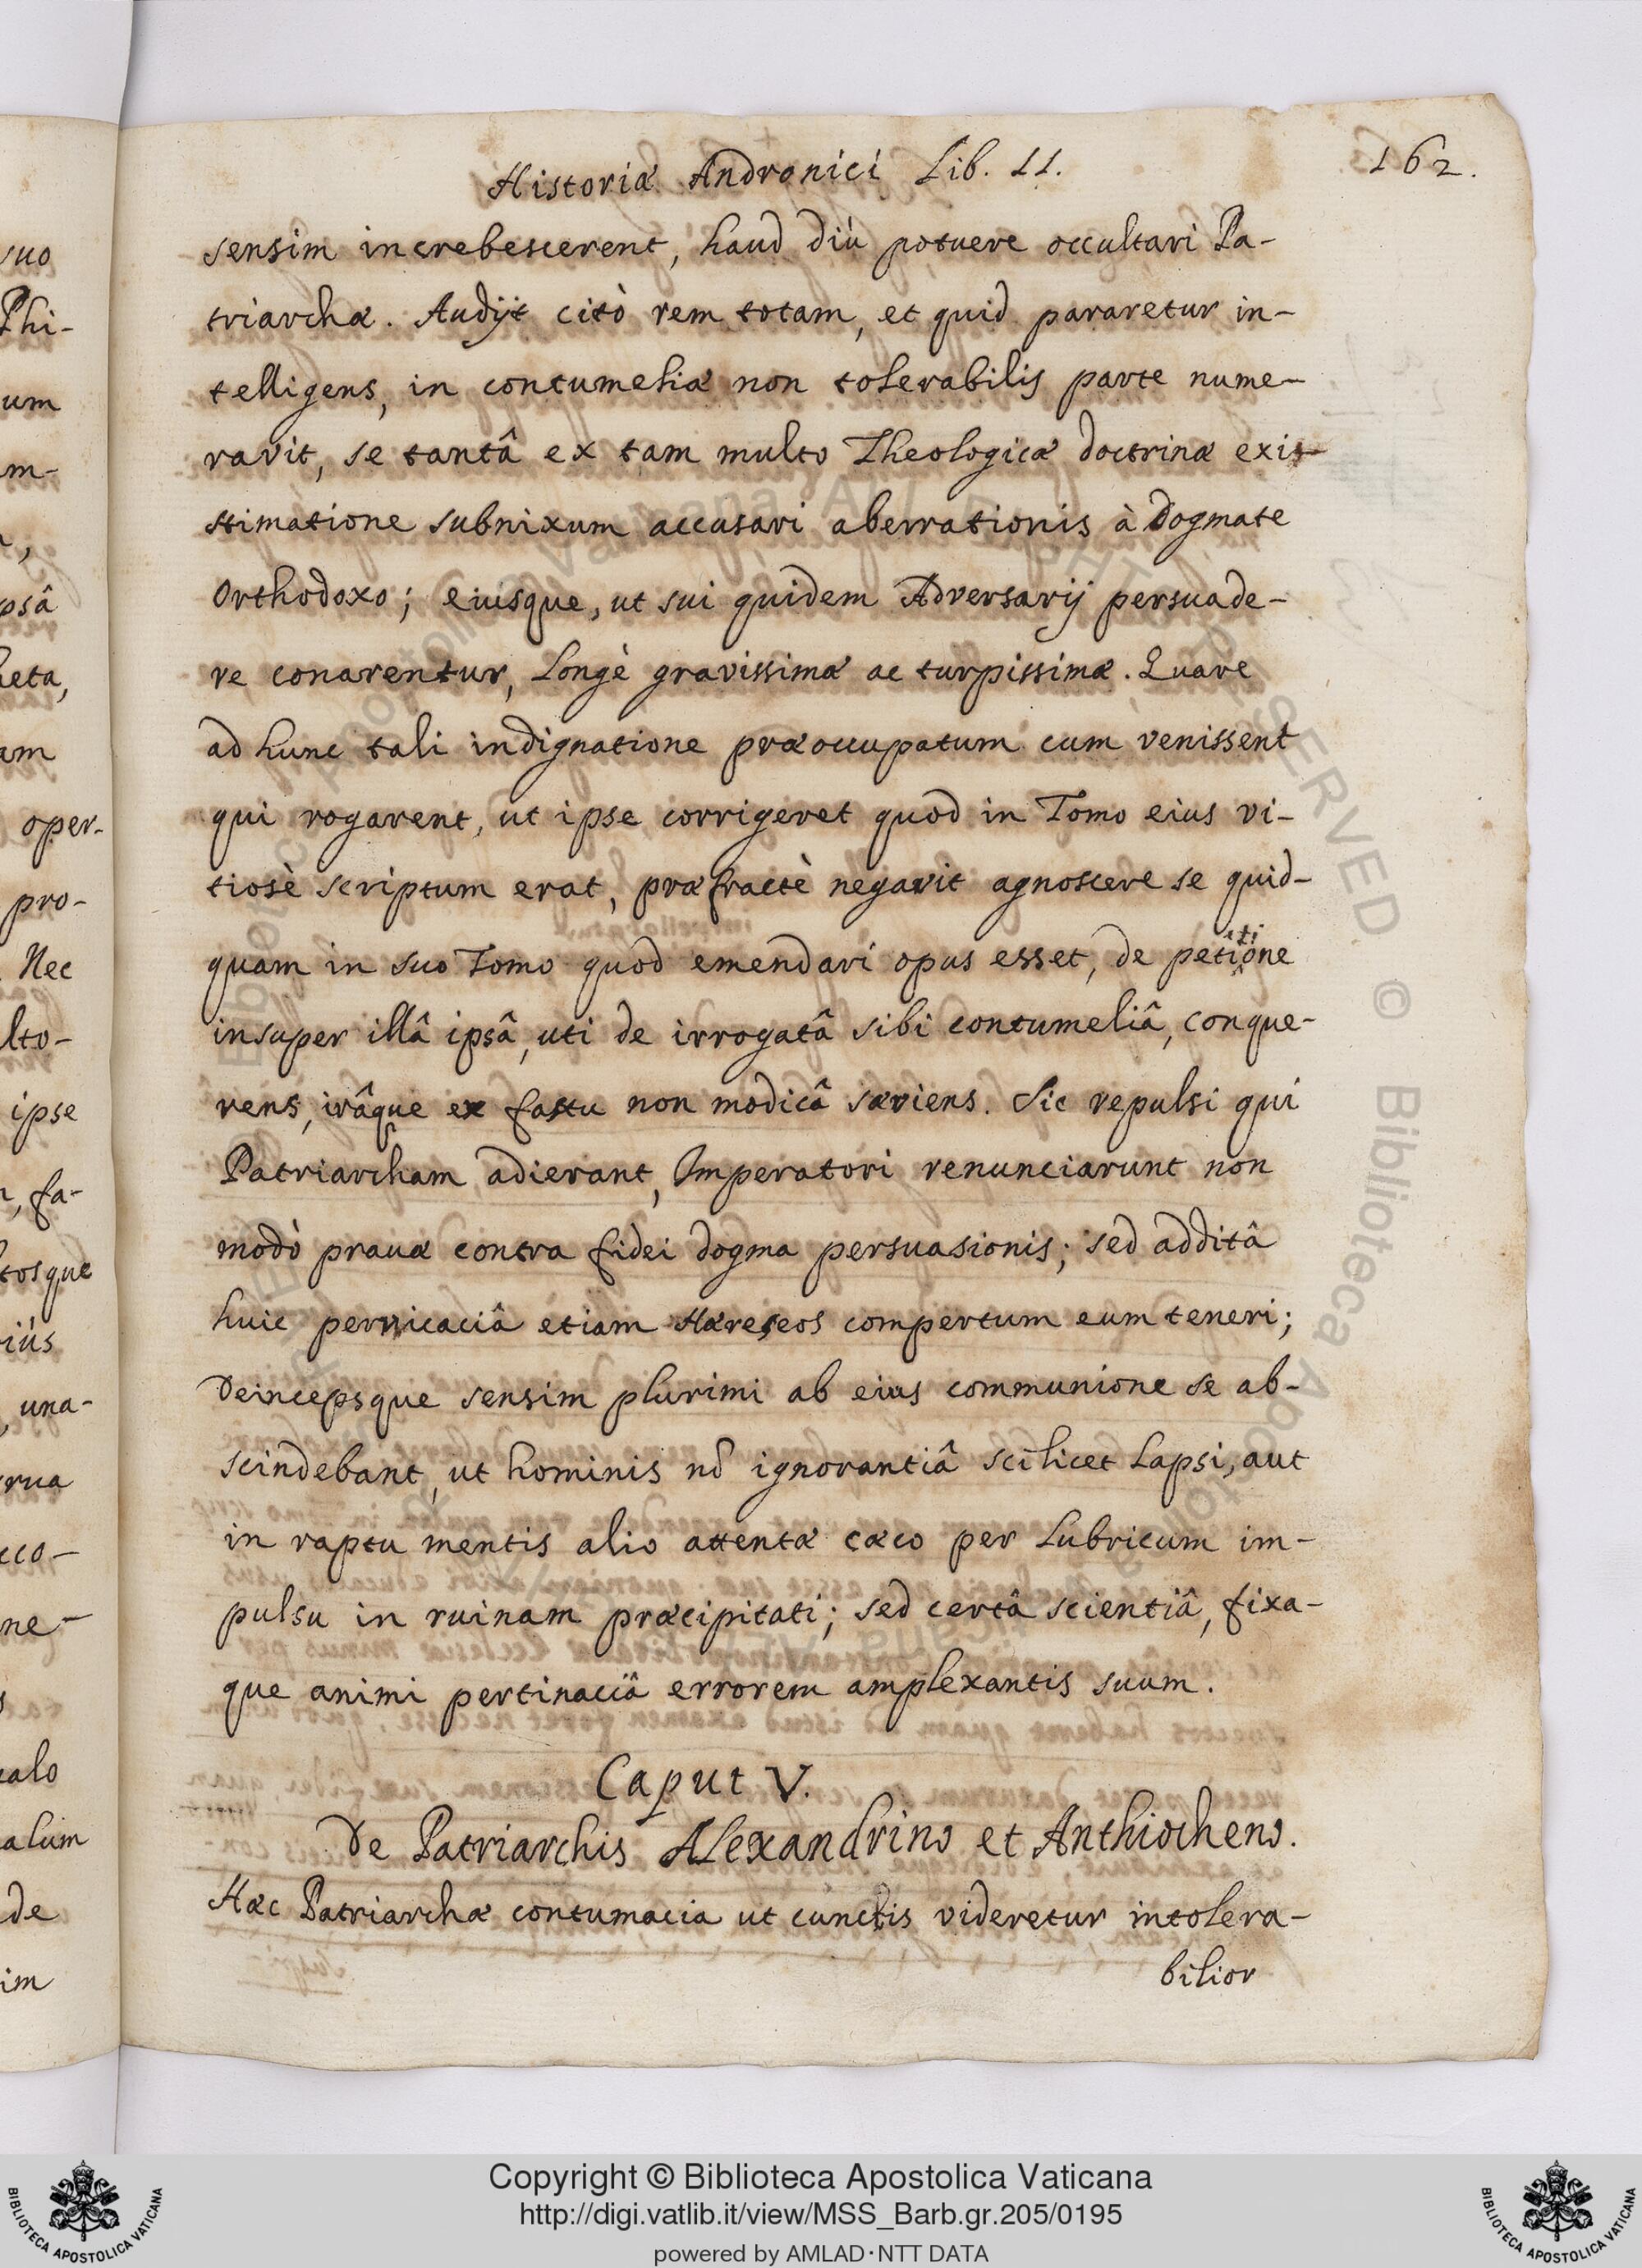 Historiæ Andronici Lib. II.
162.
sensim increbescerent, haud diù potuere occultari Pa-
triarchæ. Audijt citò rem totam, et quid pararetur in-
telligens, in contumeliæ non tolerabilis parte nume-
ravit, se tantâ ex tam multo Theologicæ doctrinæ exis-
stimatione subnixum accusari aberrationis à dogmate
Orthodoxo; eiusque, ut sui quidem Adversarij persuade-
re conarentur, Longè gravissimæ ac turpissimæ. Quare
ad hunc tali indignatione præoccupatum cum venissent
qui rogarent, ut ipse corrigeret quod in Tomo eius vi-
tiosè scriptum erat, præfractè negavit agnoscere se quid-
quam in suo Tomo quod emendari opus esset, de petitione
insuper illâ ipsâ, uti de irrogatâ sibi contumeliâ, conque-
rens, irâque ex fastu non modicâ sæviens. Sic repulsi qui
Patriarcham adierant, Imperatori renunciarunt non
modò pravæ contra fidei dogma persuasionis; sed additâ
huic pervicaciâ etiam Hæreseos compertum eum teneri;
Deincepsque sensim plurimi ab eius communione se ab-
scindebant, ut hominis nõ ignorantiâ scilicet Lapsi, aut
in raptu mentis alio attentæ cæco per Lubricum im-
pulsu in ruinam præcipitati; sed certâ scientiâ, fixa-
que animi pertinaciâ errorem amplexantis suum.
Caput V.
De Patriarchis Alexandrino et Anthiocheno.
Hæc Patriarchæ contumacia ut cunctis videretur intolera-
bilior
suo
Phi-
um
m-
psâ
heta,
am
oper-
pro-
Nec
lto-
ipse
fa-
tosque
riùs
una-
rua
cco-
ne-
calo
alum
de
im
Copyright © Biblioteca Apostolica Vaticana
http://digi.vatlib.it/view/MSS_Barb.gr.205/0195
powered by AMLAD·NTT DATA
BIBLIOTECA APOSTOLICA VATICANA
BIBLIOTECA APOSTOLICA VATICANA